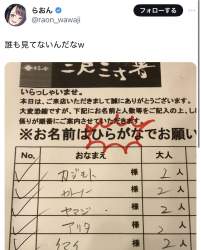 らおん
@raon_wawaji
フォローする
誰も見てないんだなw
いらっしゃいませ。
本日は、ご来店いただきまして誠にありがとうございます。
大変恐縮ですが、下記にお名前と人数等をご記入の上、し
係りが順番にご案内させていただきます。
※お名前はひらがなでお願い
No. おなまえ 大人
1 カジモト 様 2人
2 様 2人
3 ヤマジ 様 2人
4 アリタ 様 2人
5 イマイ 様 2人